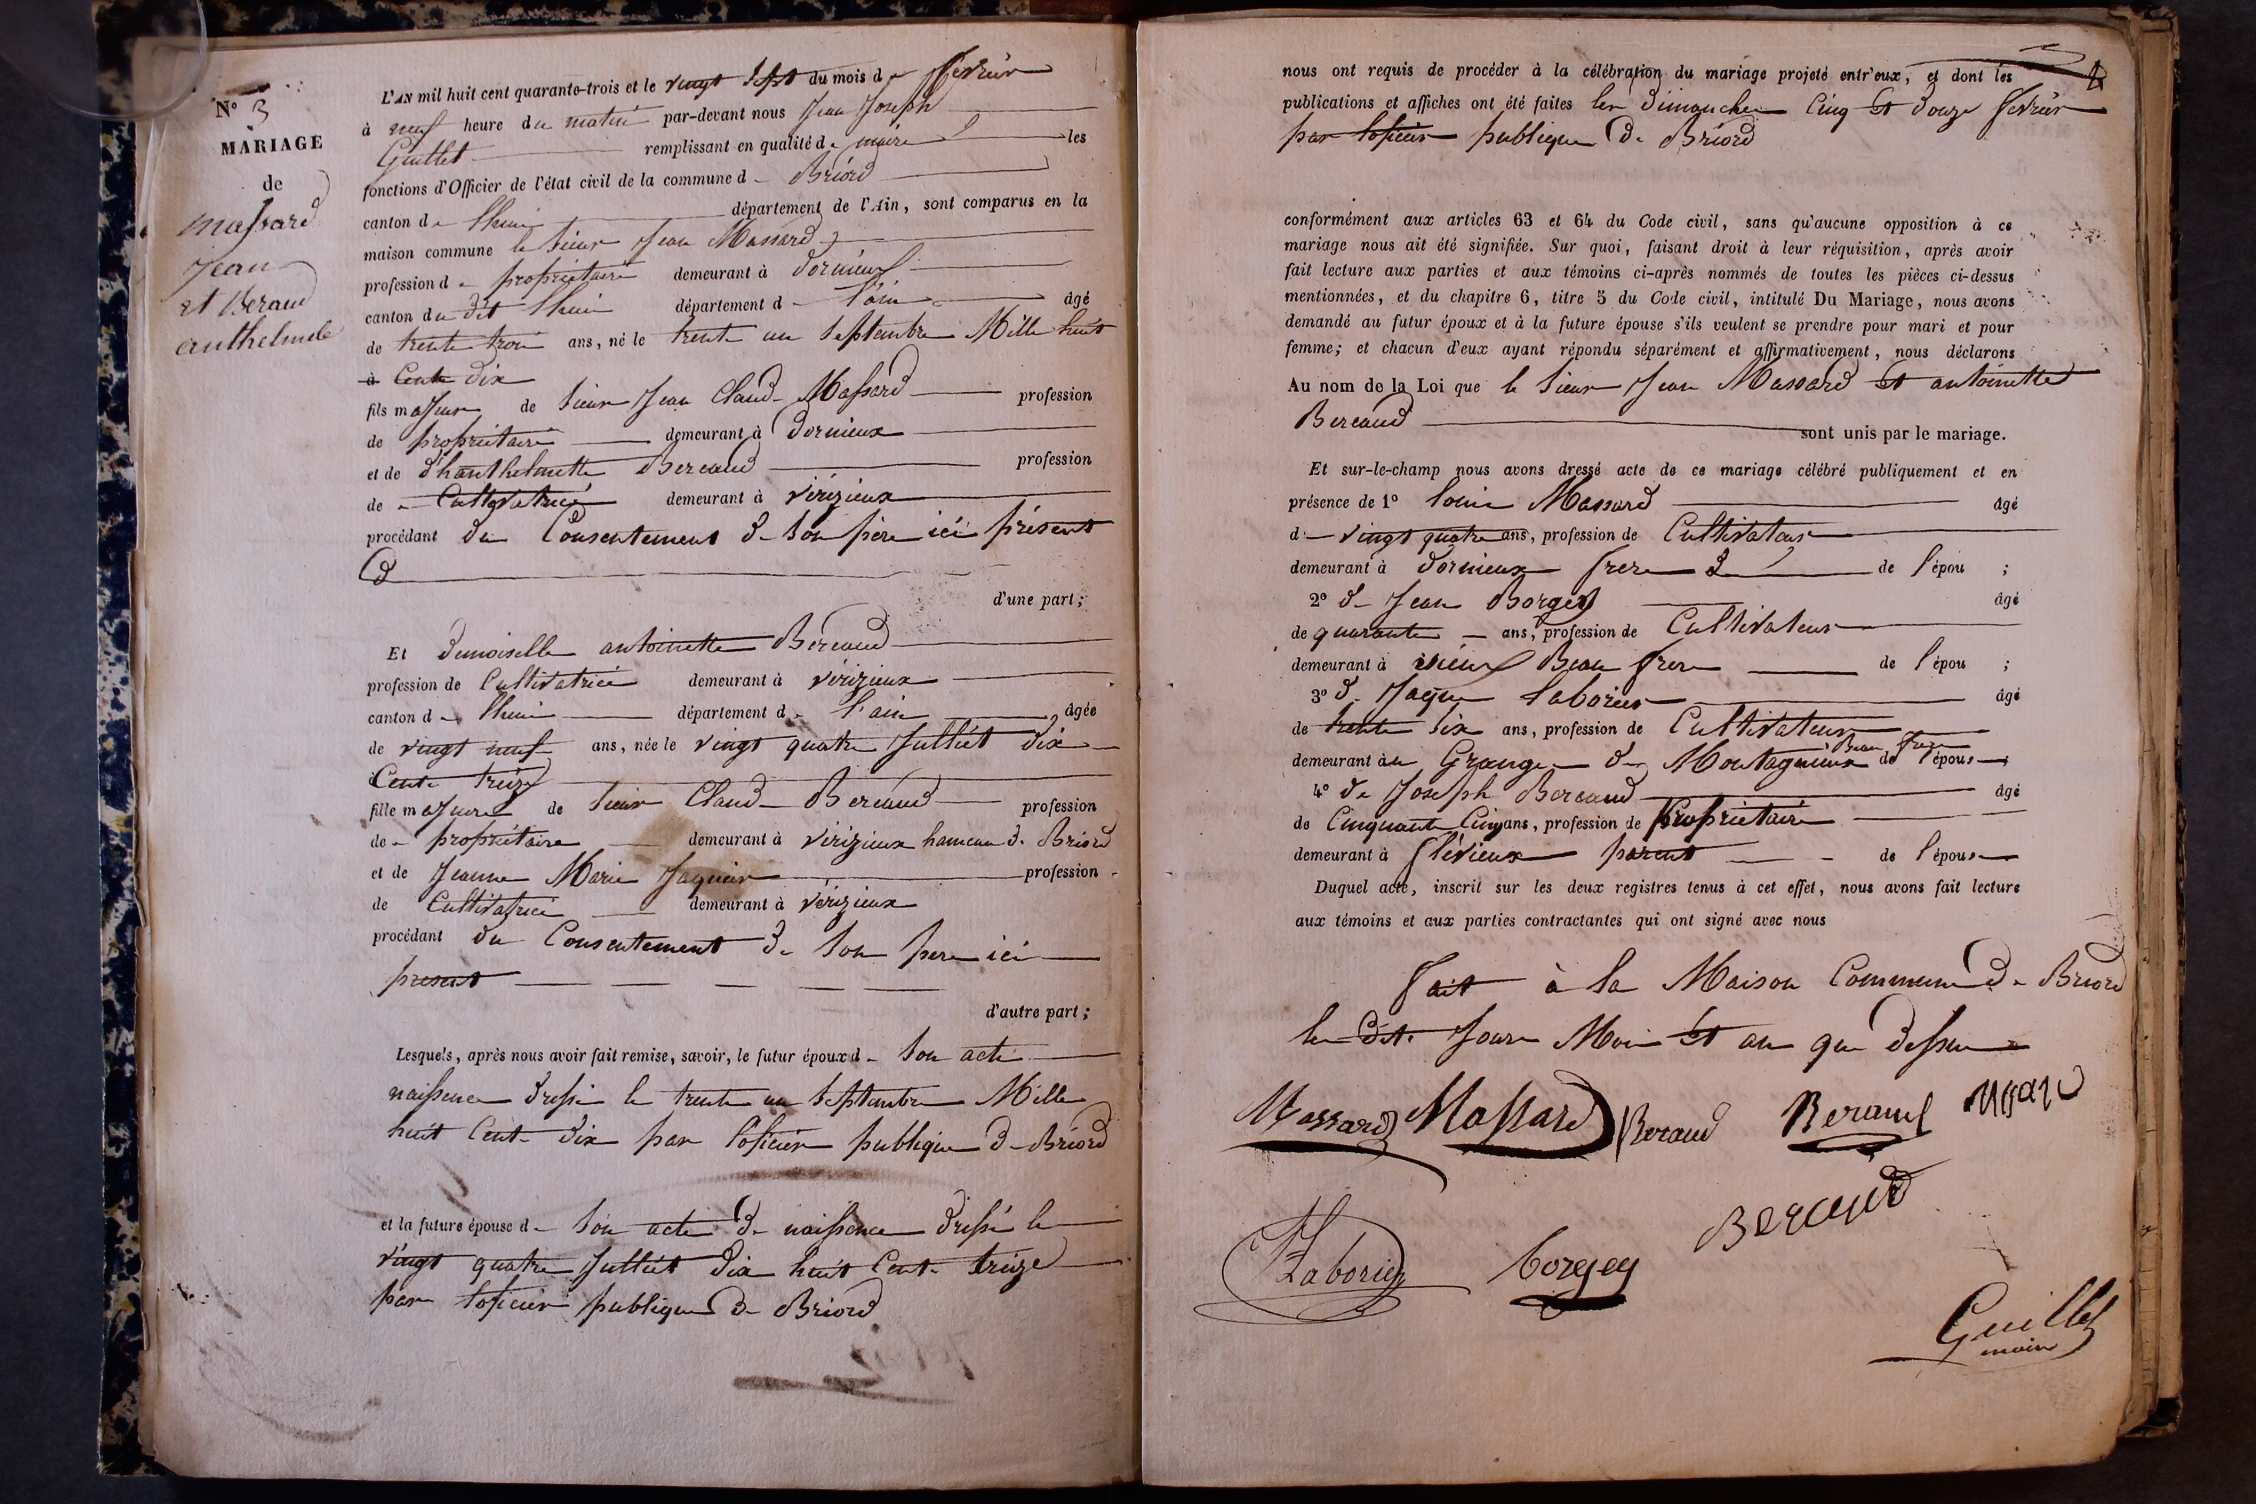 N° 3
MARIAGE
de
Massard
Jean
et Beraud
anthelmde
L'AN mil huit cent quarante-trois et le vingt Sept du mois de fevrier
à neuf heure du matin par-devant nous Jean Joseph
Guillet remplissant en qualité de maire les
fonctions d'Officier de l'état civil de la commune d Briord
canton de lhuis département de l'Ain, sont comparus en la
maison commune le Sieur Jean Massard
profession d propriétaire demeurant à dornieux
canton du dit lhuis département d l'ain âgé
de trente trois ans, né le trente un septembre Mille huit
à Cent dix
fils majeur de Sieur Jean Claud Massard profession
de propriétaire demeurant à dornieux
et de d'hanthelmette Bereaud profession
de Cultivatrice demeurant à vérizieux
procédant du Consentement de son père ici présent
d'une part;
Et demoiselle antoinette Bereaud
profession de Cultivatrice demeurant à vérizieux
canton d lhuis département d l'ain âgée
de vingt neuf ans, née le vingt quatre Julliét dix
à Cent treize
fille majeure de Sieur Claud Bereaud profession
de propriétaire demeurant à vérizieux hameau de Briord
et de Jeanne Marie Jaquier profession
de Cultivatrice demeurant à vérizieux
procédant du Consentement de son pere ici
present
d'autre part;
Lesquels, après nous avoir fait remise, savoir, le futur époux d son acte
naissence dressé le trente un septembre Mille
huit Cent dix par loficier publique de Briord
et la future épouse d son acte de naissence dressé le
vingt quatre Julliét dix huit Cent treize
par loficier publique de Briord
nous ont requis de procéder à la célébration du mariage projeté entr'eux, et dont les
publications et affiches ont été faites les dimanche Cinq Et douze fevrier
par loficier publique de Briord
conformément aux articles 63 et 64 du Code civil, sans qu'aucune opposition à ce
mariage nous ait été signifiée. Sur quoi, faisant droit à leur réquisition, après avoir
fait lecture aux parties et aux témoins ci-après nommés de toutes les pièces ci-dessus
mentionnées, et du chapitre 6, titre 5 du Code civil, intitulé Du Mariage, nous avons
demandé au futur époux et à la future épouse s'ils veulent se prendre pour mari et pour
femme; et chacun d'eux ayant répondu séparément et affirmativement, nous déclarons
Au nom de la Loi que le Sieur Jean Massard Et antoinette
Bereaud
sont unis par le mariage.
Et sur-le-champ nous avons dressé acte de ce mariage célébré publiquement et en
présence de 1° louis Massard âgé
d vingt quatre ans, profession de Cultivateur
demeurant à dornieux frere de l'épou ;
2° de Jean Borgey âgé
de quarante ans, profession de Cultivateur
demeurant à Beau frere de l'épou ;
3° de Jaque laborier âgé
de trente six ans, profession de Cultivateur
Beau frere
demeurant au Grange de Montagnieux de l'épouse ;
4° de Joseph Bereaud âgé
de Cinquante Cinq ans, profession de Propriétaire
demeurant à flévieux parent de l'épouse
Duquel acte, inscrit sur les deux registres tenus à cet effet, nous avons fait lecture
aux témoins et aux parties contractantes qui ont signé avec nous
fait à la Maison Commune de Briord
le dit. Jour Moi Et an que dessus
Massard Massard Beraud Beraud
Beraud
Laborier borgey
Guillet
maire